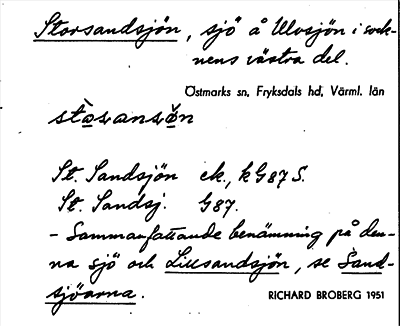 Storsandsjön, sjö å Ulvsjön i sock-
nens västra del.
Östmarks sn, Fryksdals hd, Värml. län
St. Sandsjön ek., k G87 S.
St. Sandsj. G87.
- Sammanfattande benämning på den-
na sjö och Lillsandsjön, se Sand-
sjöarna.
RICHARD BROBERG 1951